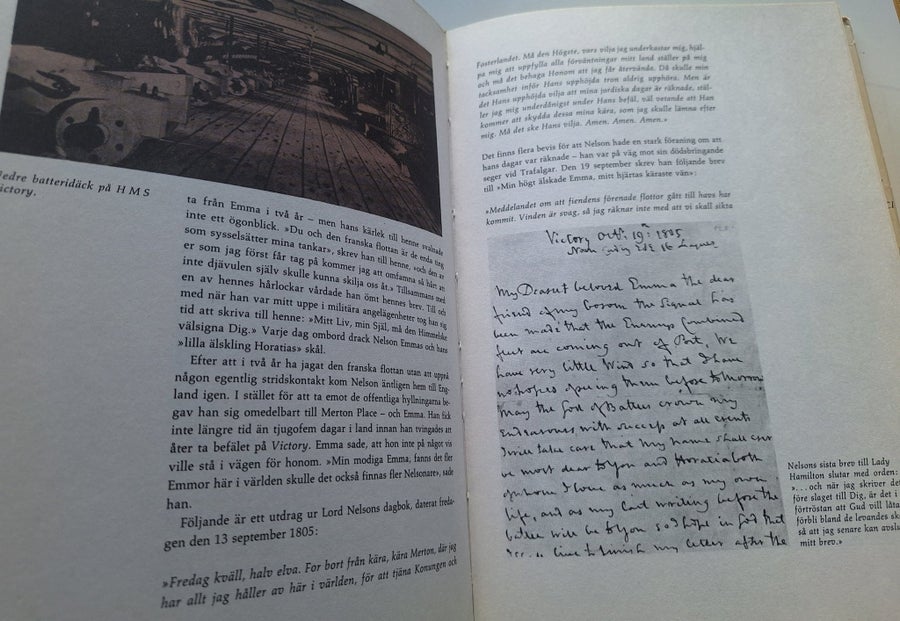 edre batteridäck på H M S
ictory.
ta från Emma i två år – men hans kärlek till henne svalnade
inte ett ögonblick. »Du och den franska flottan är de enda ting
som sysselsätter mina tankar», skrev han till henne, »och den av
er som jag först får tag på kommer jag att omfamna så hårt att
inte djävulen själv skulle kunna skilja oss åt.» Tillsammans med
en av hennes hårlockar vårdade han ömt hennes brev. Till och
med när han var mitt uppe i militära angelägenheter tog han sig
tid att skriva till henne: »Mitt Liv, min Själ, må den Himmelske
välsigna Dig.» Varje dag ombord drack Nelson Emmas och hans
»lilla älskling Horatias» skål.
Efter att i två år ha jagat den franska flottan utan att uppnå
någon egentlig stridskontakt kom Nelson äntligen hem till Eng-
land igen. I stället för att ta emot de offentliga hyllningarna be-
gav han sig omedelbart till Merton Place – och Emma. Han fick
inte längre tid än tjugofem dagar i land innan han tvingades att
åter ta befälet på Victory. Emma sade, att hon inte på något vis
ville stå i vägen för honom. »Min modiga Emma, fanns det fler
Emmor här i världen skulle det också finnas fler Nelsonar», sade
han.
Följande är ett utdrag ur Lord Nelsons dagbok, daterat freda-
gen den 13 september 1805:
»Fredag kväll, halv elva. For bort från kära, kära Merton, där jag
har allt jag håller av här i världen, för att tjäna Konungen och
Fosterlandet. Må den Högste, vars vilja jag underkastar mig, hjäl-
pa mig att uppfylla alla förväntningar mitt land ställer på mig
och må det behaga Honom att jag får återvända. Då skulle min
tacksamhet inför Hans upphöjda tron aldrig upphöra. Men är
det Hans upphöjda vilja att mina jordiska dagar är räknade, stäl-
ler jag mig underdånigst under Hans befäl, väl vetande att Han
kommer att skydda dessa mina kära, som jag skulle lämna efter
mig. Må det ske Hans vilja. Amen. Amen. Amen.»
Det finns flera bevis för att Nelson hade en stark föraning om att
hans dagar var räknade – han var på väg mot sin dödsbringande
seger vid Trafalgar. Den 19 september skrev han följande brev
till »Min högt älskade Emma, mitt hjärtas käraste vän»:
»Meddelandet om att fiendens förenade flottor gått till havs har
kommit. Vinden är svag, så jag räknar inte med att vi skall sikta
Victory Octr. 19th: 1805
Noon Cadiz ESE 16 Leagues
My Dearest beloved Emma the dear
friend of my bosom the Signal has
been made that the Enemys Combined
fleet are coming out of Port, We
have very little Wind so that I have
no hopes of seeing them before tomorrow
May the God of Battles crown my
Endeavours with success at all events
I will take care that my name shall ever
be most dear to you and Horatia both
of whom I love as much as my own
life, and as my last writing before the
battle will be to you so I hope in God that
live to finish my letter after the
Nelsons sista brev till Lady
Hamilton slutar med orden:
»...och när jag skriver det
före slaget till Dig, är det i
förtröstan att Gud vill låta
förbli bland de levandes sk
så att jag senare kan avslu
mitt brev.»